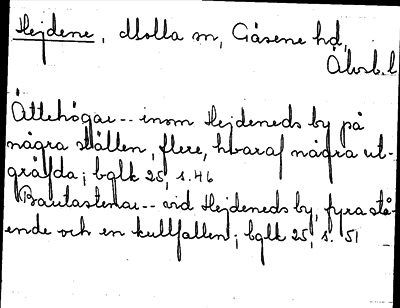 Hejdene, Molla sn, Gäsene hd,
Älvsb. l
Ättehögar -- inom Hejdeneds by på
några ställen, flere, hvaraf några ut-
gräfda; bglk 25, s. 46
Bautastenar -- vid Hejdeneds by, fyra stå-
ende och en kullfallen; bglk 25, s. 51